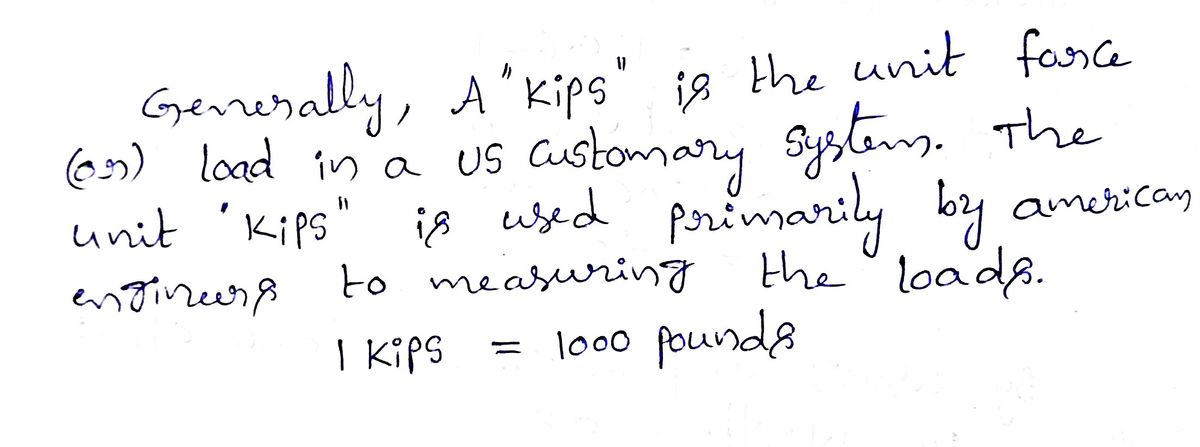 Generally, A "Kips" is the unit force
(or) load in a US Customary System. The
unit 'Kips" is used primarily by american
engineers to measuring the loads.
1 Kips = 1000 pounds